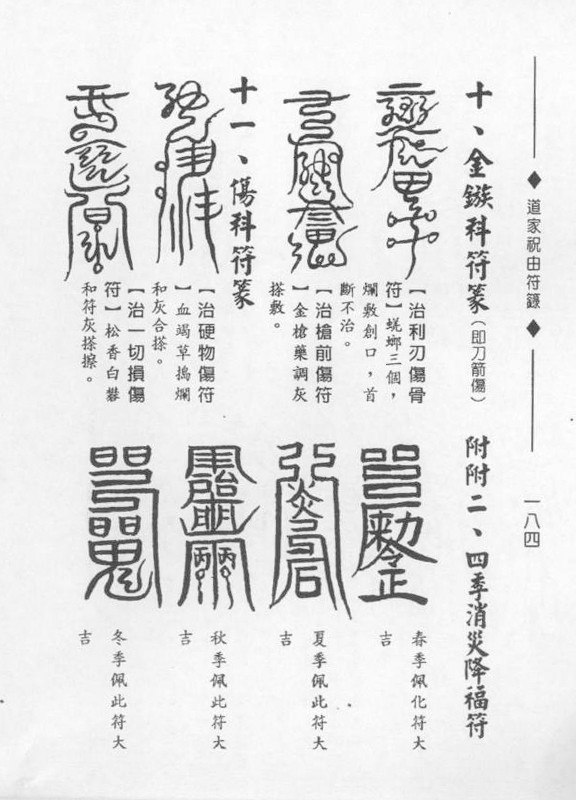 ◆ 道家祝由符籙 ◆
一八四
十、金鏃科符篆(即刀箭傷)
【治利刃傷骨
符】蜣螂三個,
爛敷創口,首
斷不治。
【治槍前傷符
】金槍藥調灰
搽敷。
十一、傷科符篆
【治硬物傷符
】血竭草搗爛
和灰合搽。
【治一切損傷
符】松香白礬
和符灰搽擦。
附附二、四季消災降福符
春季佩化符大
吉
夏季佩此符大
吉
秋季佩此符大
吉
冬季佩此符大
吉